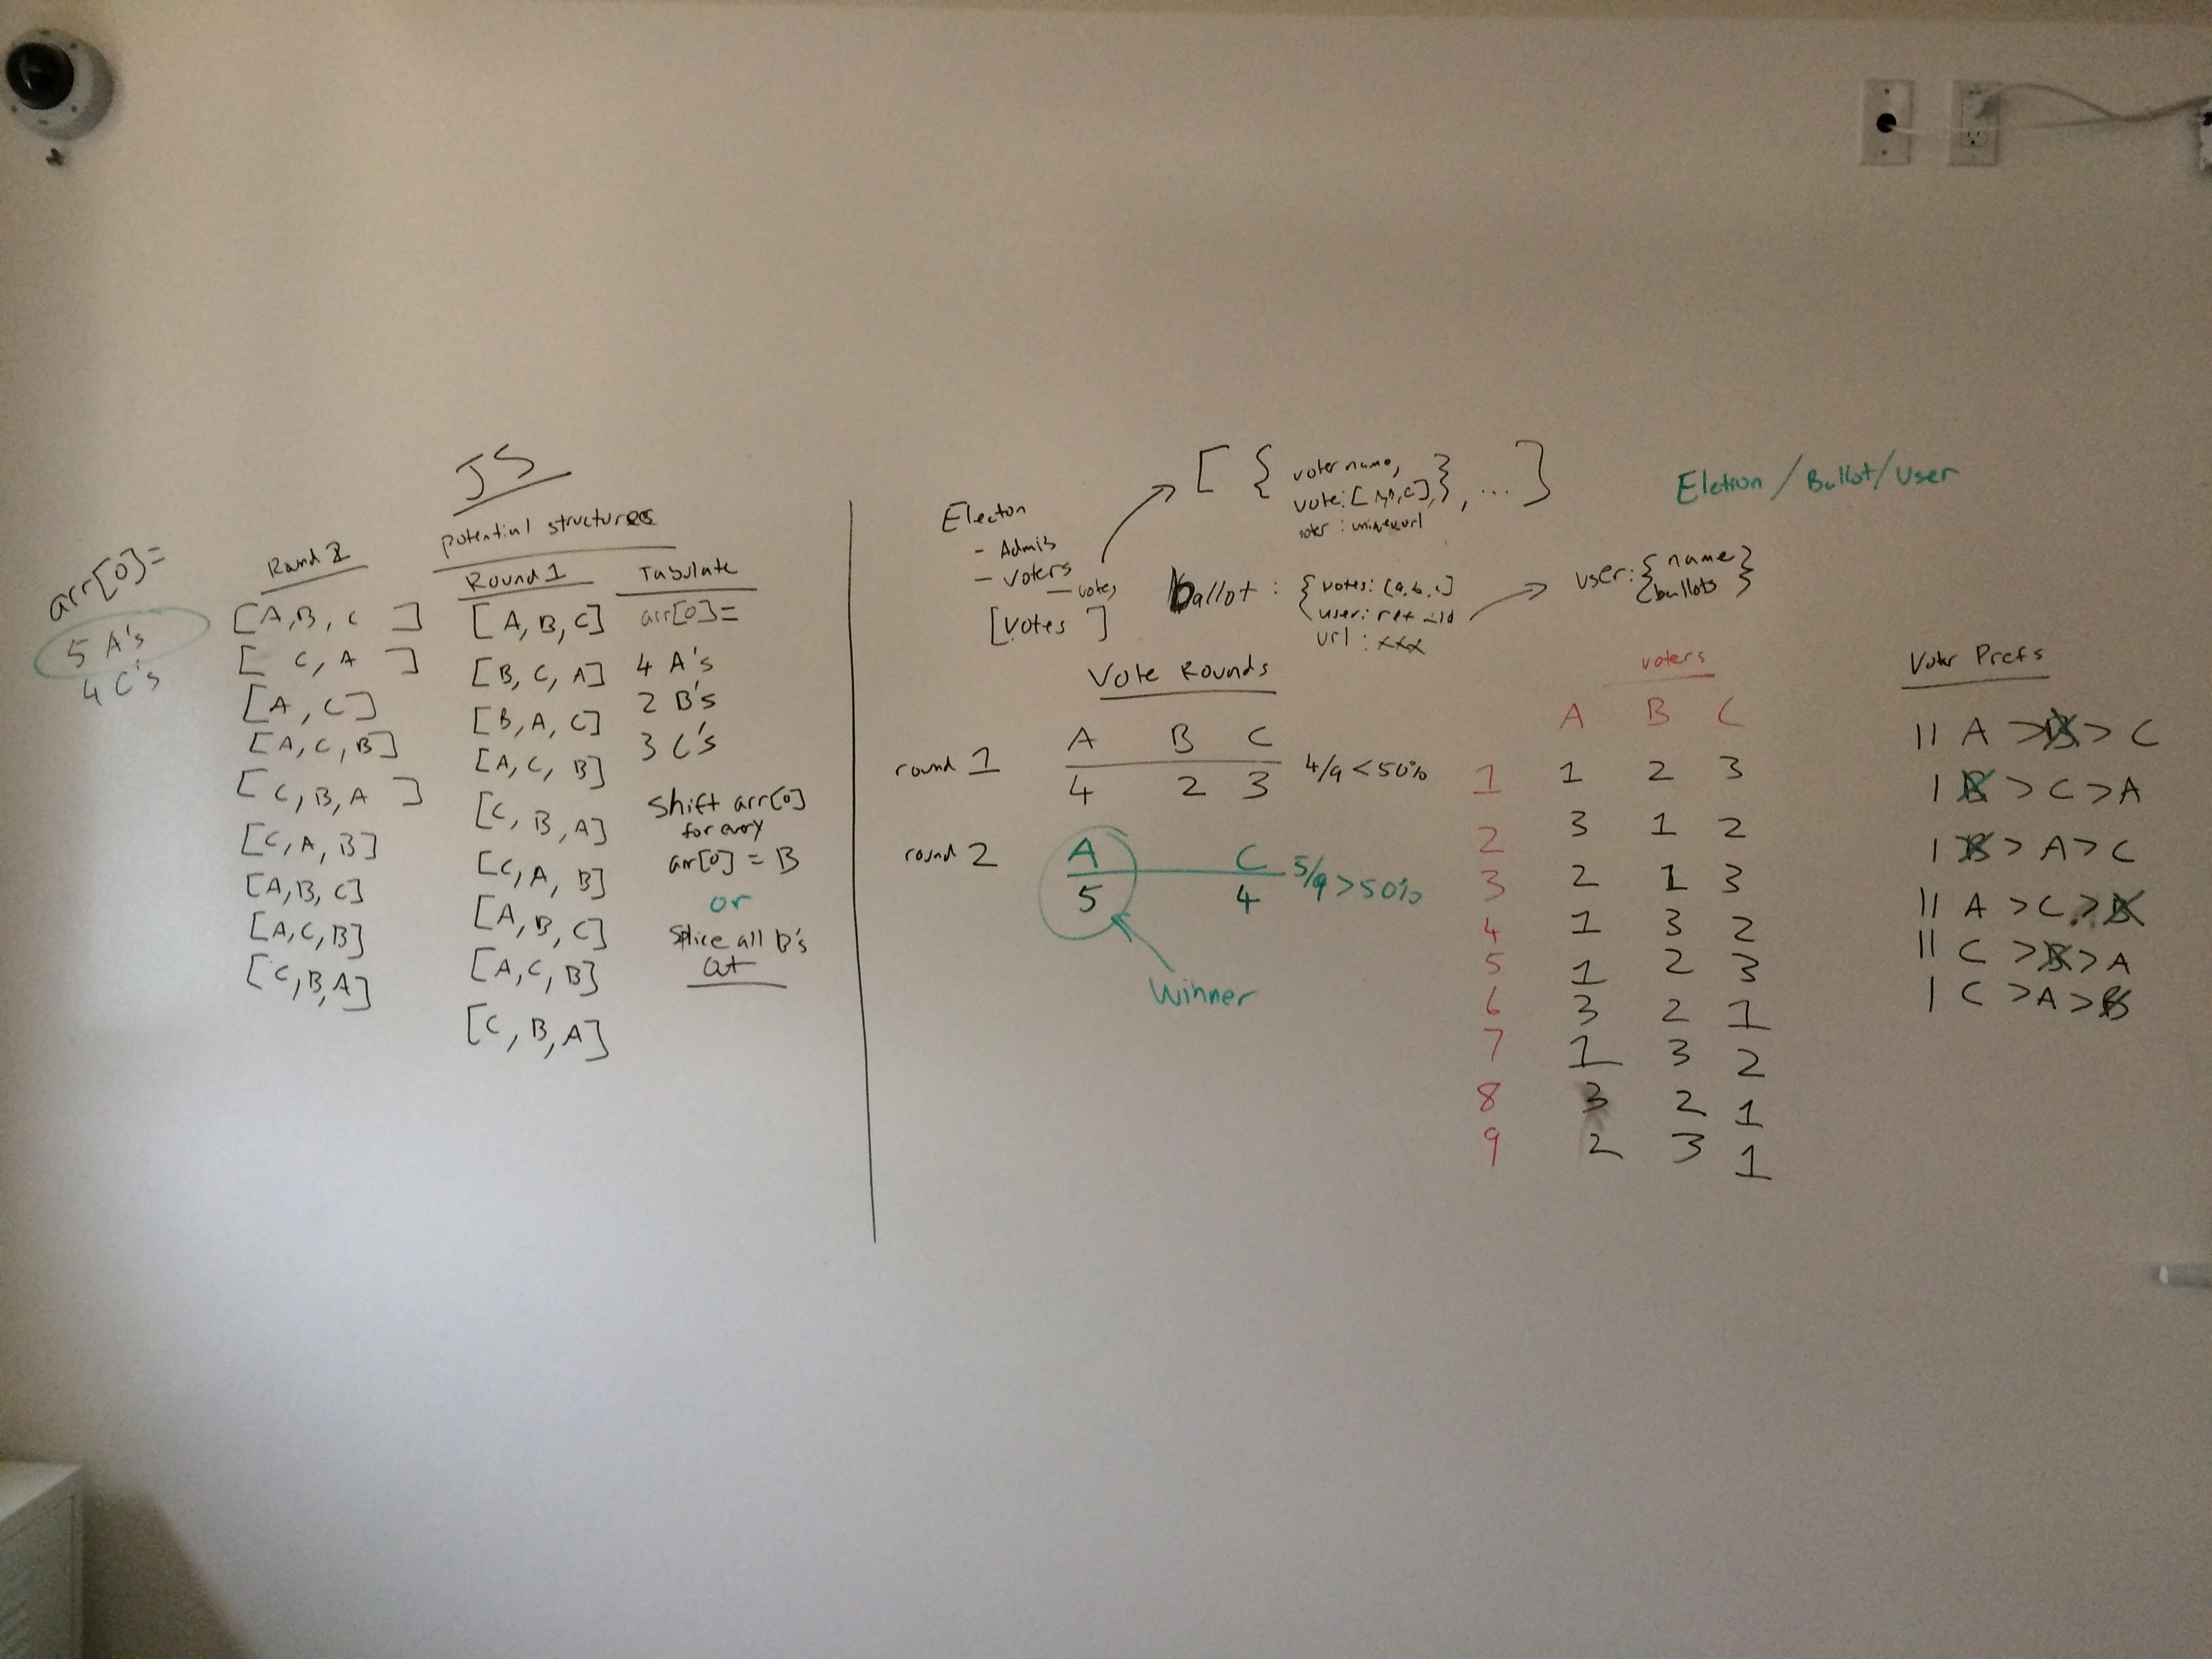 JS
potential structures
arr[0]=
5 A's
4 C's
Round 2
[A,B, C ]
[ C, A ]
[A, C]
[A, C, B]
[ C, B, A ]
[C, A, B]
[A,B, C]
[A, C, B]
[C, B, A]
Round 1
[A, B, C]
[B, C, A]
[B, A, C]
[A, C, B]
[C, B, A]
[C, A, B]
[A, B, C]
[A, C, B]
[C, B, A]
Tabulate
arr[0]=
4 A's
2 B's
3 C's
Shift arr[0]
for every
arr[0] = B
or
Splice all B's
out
Electon
- Admin
- Voters
- votes
[votes ]
[ { voter name,
vote: [A,B,C], }, ... ]
voter : unique url
Eletion / Ballot / User
ballot : { votes: [a, b, c]
user: ref _id
url : xxx
user: { name
ballots }
Vote Rounds
A B C
round 1 4 2 3 4/9 < 50%
round 2 A C 5/9 > 50%
5 4
Winner
voters
A B C
1 1 2 3
2 3 1 2
3 2 1 3
4 1 3 2
5 1 2 3
6 3 2 1
7 1 3 2
8 3 2 1
9 2 3 1
Voter Prefs
|| A > B > C
| B > C > A
| B > A > C
|| A > C > B
|| C > B > A
| C > A > B